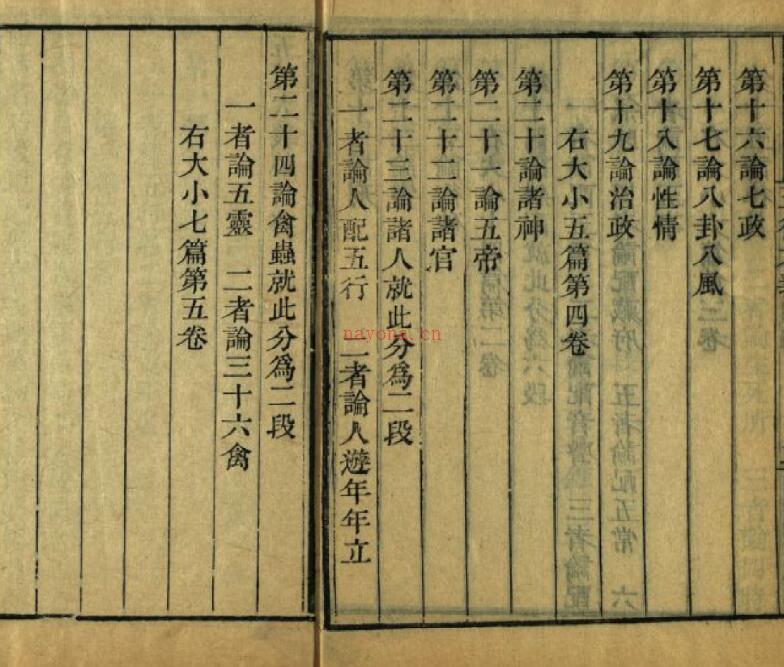 第十六論七政
第十七論八卦八風
第十八論性情
第十九論治政
右大小五篇第四卷
第二十論諸神
第二十一論五帝
第二十二論諸官
第二十三論諸人就此分爲二段
一者論人配五行　二者論人遊年年立
第二十四論禽蟲就此分爲二段
一者論五靈　二者論三十六禽
右大小七篇第五卷
nayona.cn